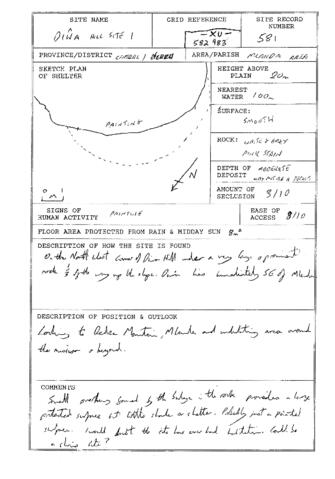 SITE NAME GRID REFERENCE SITE RECORD NUMBER
HILL SITE 1 - XU - 592 983 581
PROVINCE/DISTRICT CENTRAL / DEDZA AREA/PARISH MLANDA AREA
SKETCH PLAN OF SHELTER
PAINTING
N
0 1 m
HEIGHT ABOVE PLAIN 90m
NEAREST WATER 100m
SURFACE: SMOOTH
ROCK: GREY
PINK STAIN
DEPTH OF DEPOSIT MODERATE
AMOUNT OF SECLUSION 3/10
SIGNS OF HUMAN ACTIVITY PAINTING
EASE OF ACCESS 8/10
FLOOR AREA PROTECTED FROM RAIN & MIDDAY SUN 8m²
DESCRIPTION OF HOW THE SITE IS FOUND
On the North West corner of Hill under a very large prominent
rock of the way up the slope. lies immediately SE of Mlanda
DESCRIPTION OF POSITION & OUTLOOK
Looking to Dedza Mountain, Mlanda and undulating area around
the mission & beyond.
COMMENTS
Small overhang formed by the bulge in the rock provides a large
protected surface but little shade or shelter. Probably just a painted
surface. I would doubt the site has ever had habitation. Could be
a site?